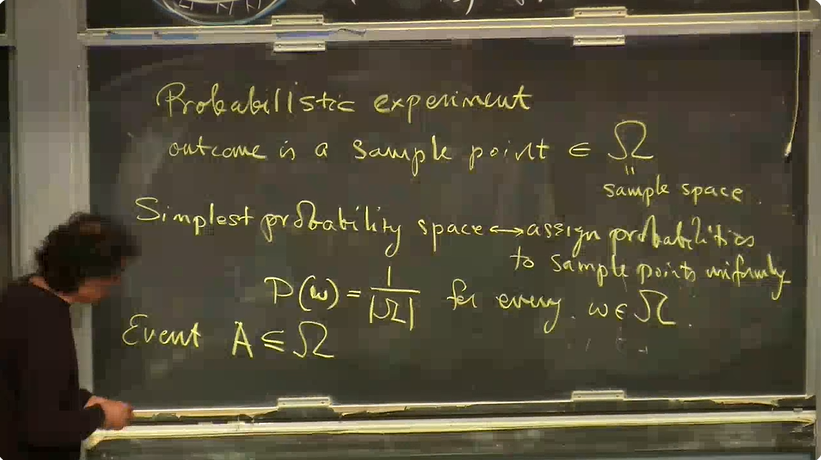 Probabilistic experiment
outcome is a sample point ∈ Ω
=
sample space.
Simplest probability space ↔ assign probabilities
to sample points uniformly
P(ω) = 1/|Ω| for every ω ∈ Ω.
Event A ⊆ Ω